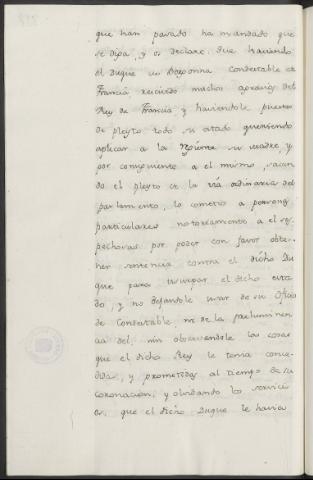 que han pasado ha mandado que
se diga, y os declare: Que haviendo
el Duque de Borbonna Condestable de
Francia recivido muchos agravios del
Rey de Francia, y haviendole puesto
de pleyto todo su estado queriendo
aplicar a la Regente su madre, y
por consiguiente a el mismo, sacan
do el pleyto de la vía ordinaria del
parlamento, lo cometio a personas
particulares notoriamente a el sos
pechosas por poder con favor obte
ner sentencia contra el dicho Du
que para usurpar el dicho esta
do, y no dejandole usar de su Oficio
de Condestable, ni de la preheminen
cia del, ni observandole las cosas
que el dicho Rey le tenia conce
didas, y prometidas al tiempo de su
coronacion, y olvidando los servici
os, que el dicho Duque le havia